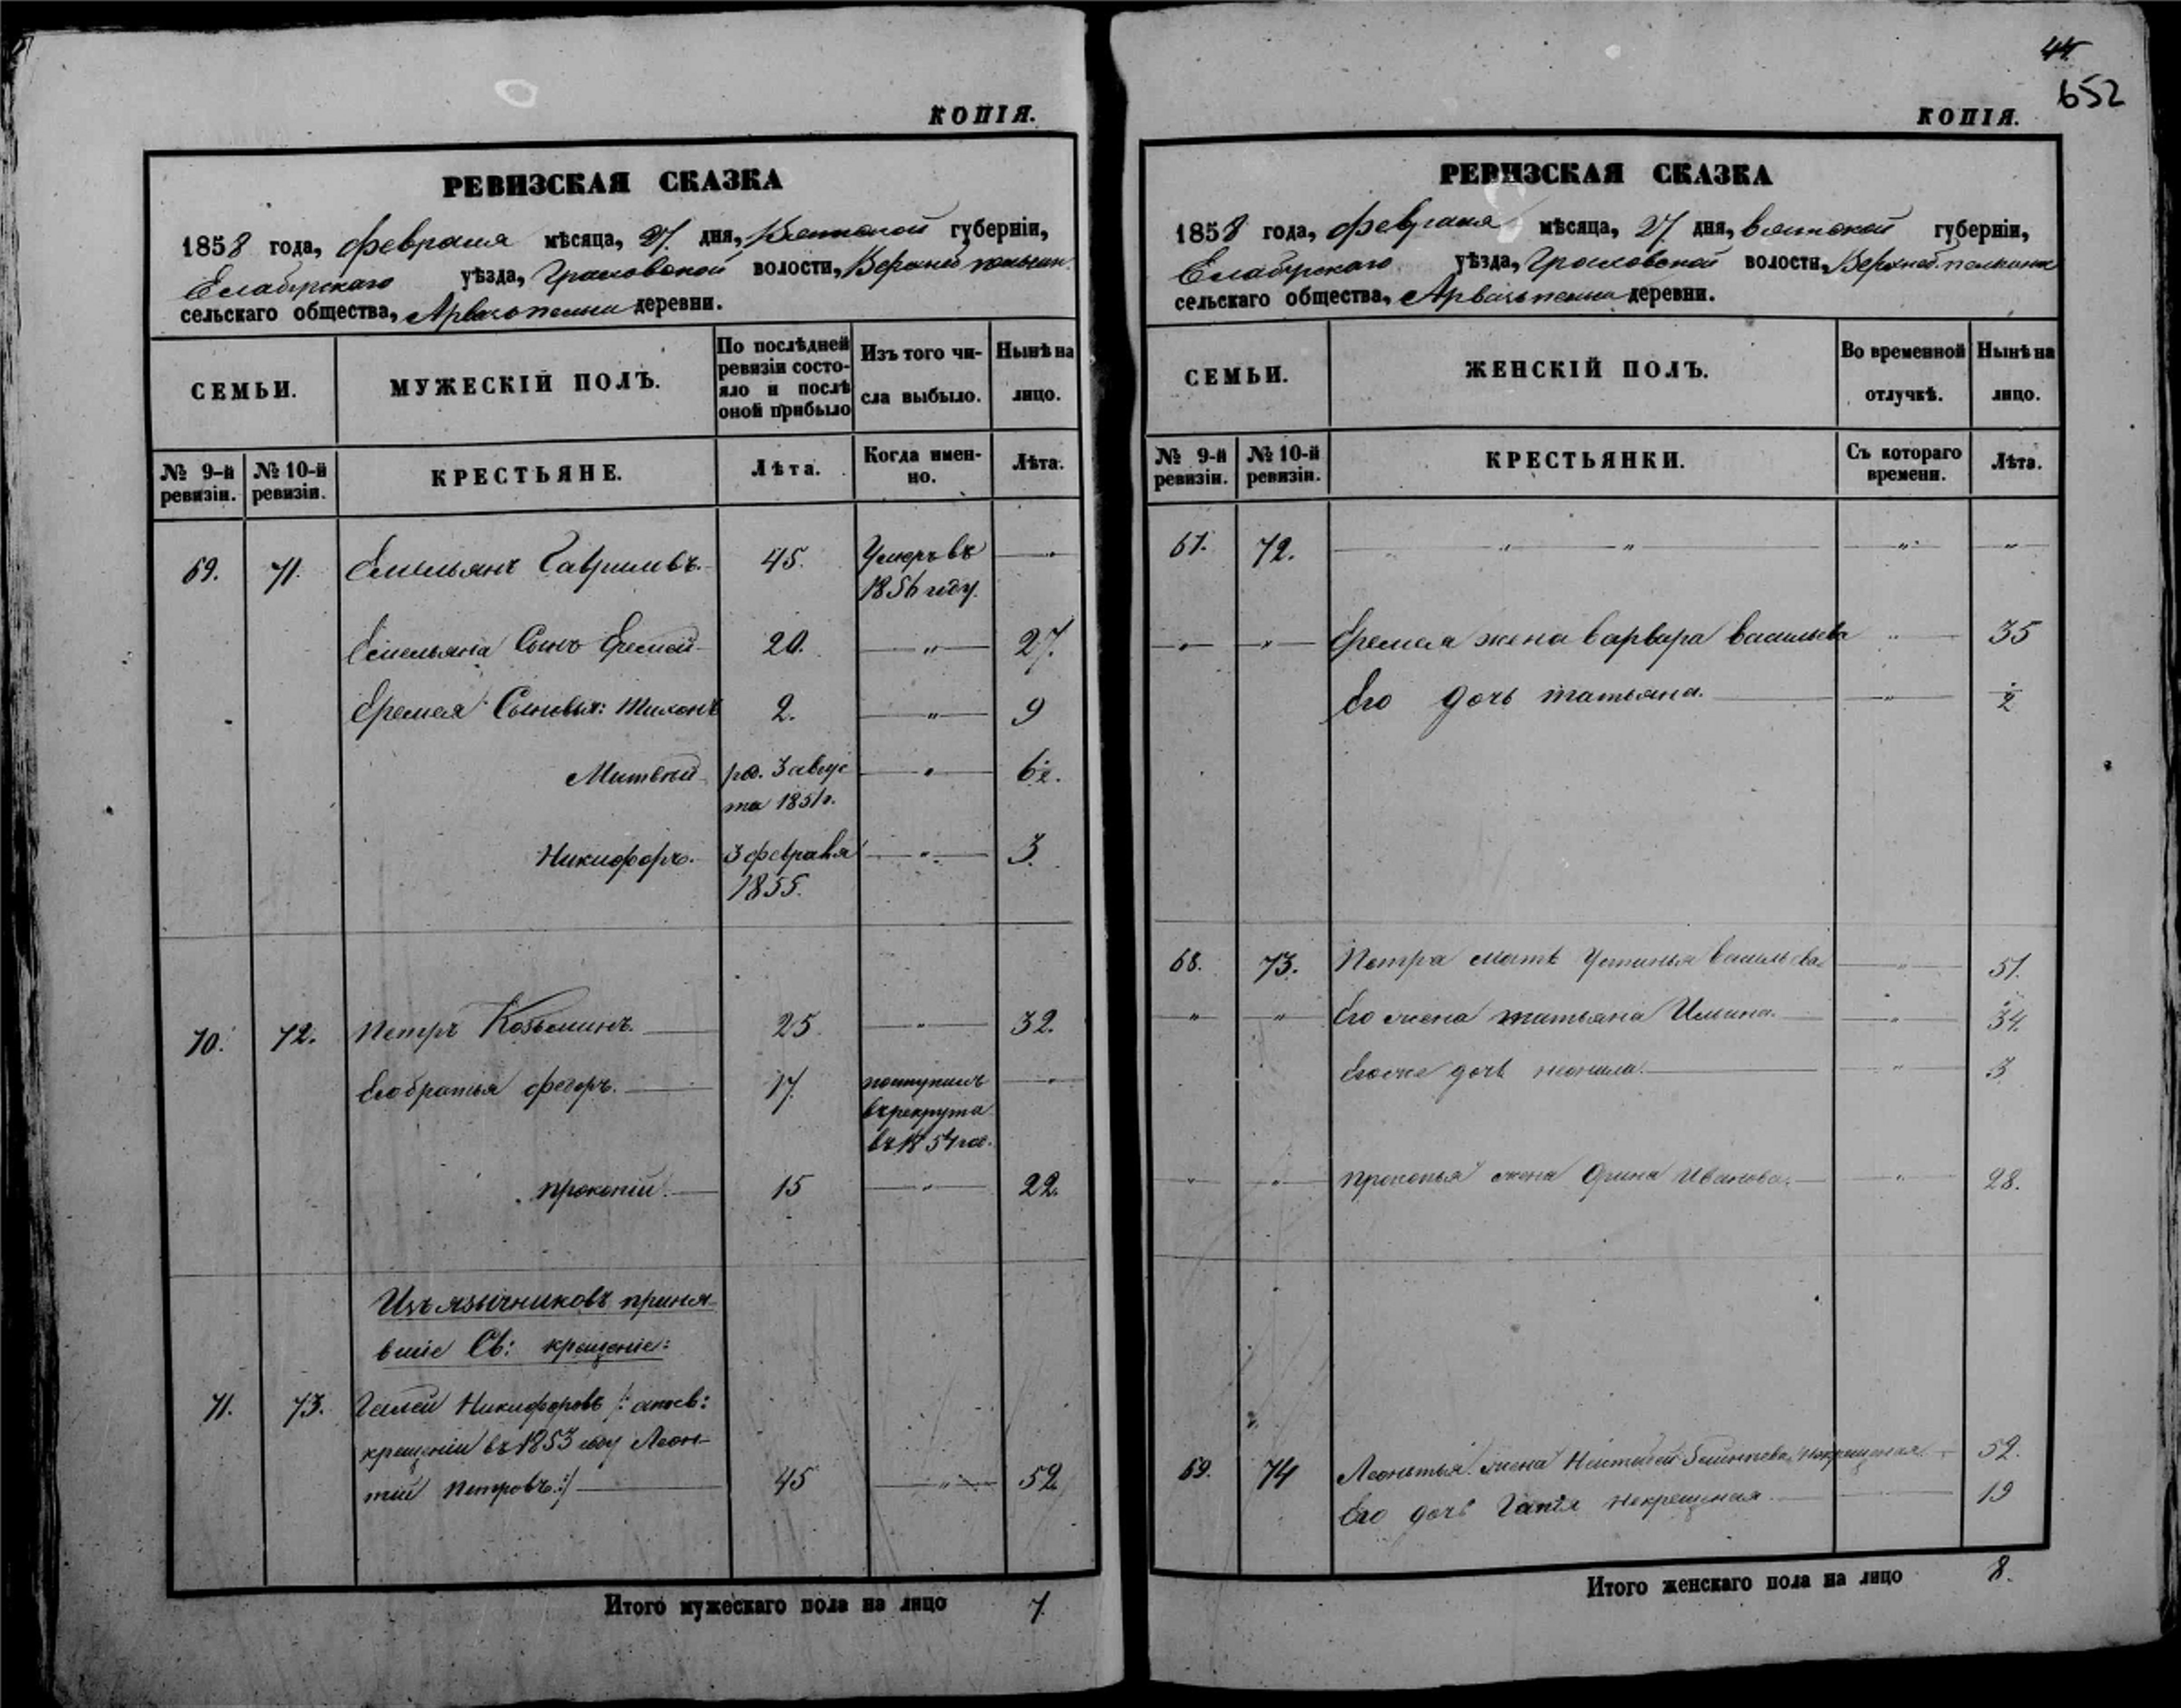 КОПІЯ.
РЕВИЗСКАЯ СКАЗКА
1858 года, февраля мѣсяца, 27 дня, Вятской губерніи,
Елабугскаго уѣзда, Граховской волости, Верхней
сельскаго общества, деревни.
СЕМЬИ.
МУЖЕСКІЙ ПОЛЪ.
По послѣдней ревизіи состояло и послѣ оной прибыло
Изъ того числа выбыло.
Нынѣ на лицо.
№ 9-й ревизіи.
№ 10-й ревизіи.
КРЕСТЬЯНЕ.
Лѣта.
Когда именно.
Лѣта.
69. 71. Емельянъ Гавриловъ. 45. Умеръ въ
1856 году.
Емельяна Сынъ Еремей 20. 27.
Еремея Сыновья: Тихонъ 2. 9
Матвѣй род. 3 авгус
та 1851 г. 6½.
Никифоръ. 3 февраля 3.
1855.
70. 72. Петръ Козьминъ. 25 32.
Его братья Федоръ. 17. поступилъ
въ рекрута
въ 1854 го.
Прокопій. 15 22.
Изъ язычниковъ приня
вшіе Св: крещеніе:
71. 73. Никифоровъ /: а по св:
крещеніи въ 1853 году Леон-
тій Петровъ :/ 45 52
Итого мужескаго пола на лицо 7.
44.
652
КОПІЯ.
РЕВИЗСКАЯ СКАЗКА
1858 года, февраля мѣсяца, 27 дня, Вятской губерніи,
Елабугскаго уѣзда, Граховской волости,
сельскаго общества, деревни.
СЕМЬИ.
ЖЕНСКІЙ ПОЛЪ.
Во временной отлучкѣ.
Нынѣ на лицо.
№ 9-й ревизіи.
№ 10-й ревизіи.
КРЕСТЬЯНКИ.
Съ котораго времени.
Лѣта.
67. 72.
Еремея жена Варвара Васильева 35
Его дочь Татьяна. ½
68. 73. Петра мать Устинья Васильева 51.
Его жена Татьяна Ильина. 34.
Его же дочь Неонила. 3
Прокопья жена Орина Иванова. 28.
69. 74 Леонтья жена некрещеная 52.
Его дочь некрещеная 19
Итого женскаго пола на лицо 8.